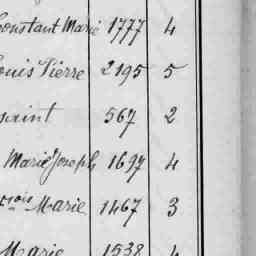 Constant Marie 1777 4
Louis Pierre 2195 5
saint 567 2
Marie Joseph 1697 4
çois Marie 1467 3
Marie 1538 4